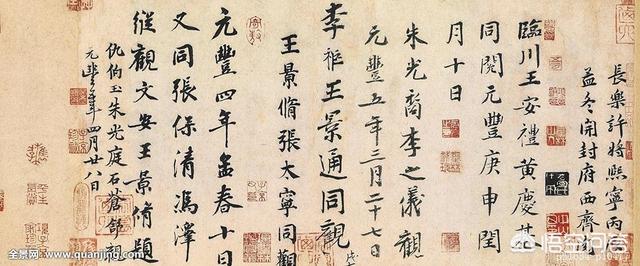 長樂許將熙寧丙
孟冬開封府西齋閱
臨川王安禮黃慶基
同閱元豐庚申閏
月十日
朱光裔李之儀觀
元豐五年三月二十七日
李 王景通同觀
王景脩張太寧同觀
元豐四年孟春十日
又同張保清馮澤
縱觀文安王景脩題
仇伯玉朱光庭石蒼舒觀
元豐 年四月廿八日
全景网 www.quanjing.com
悟空问答